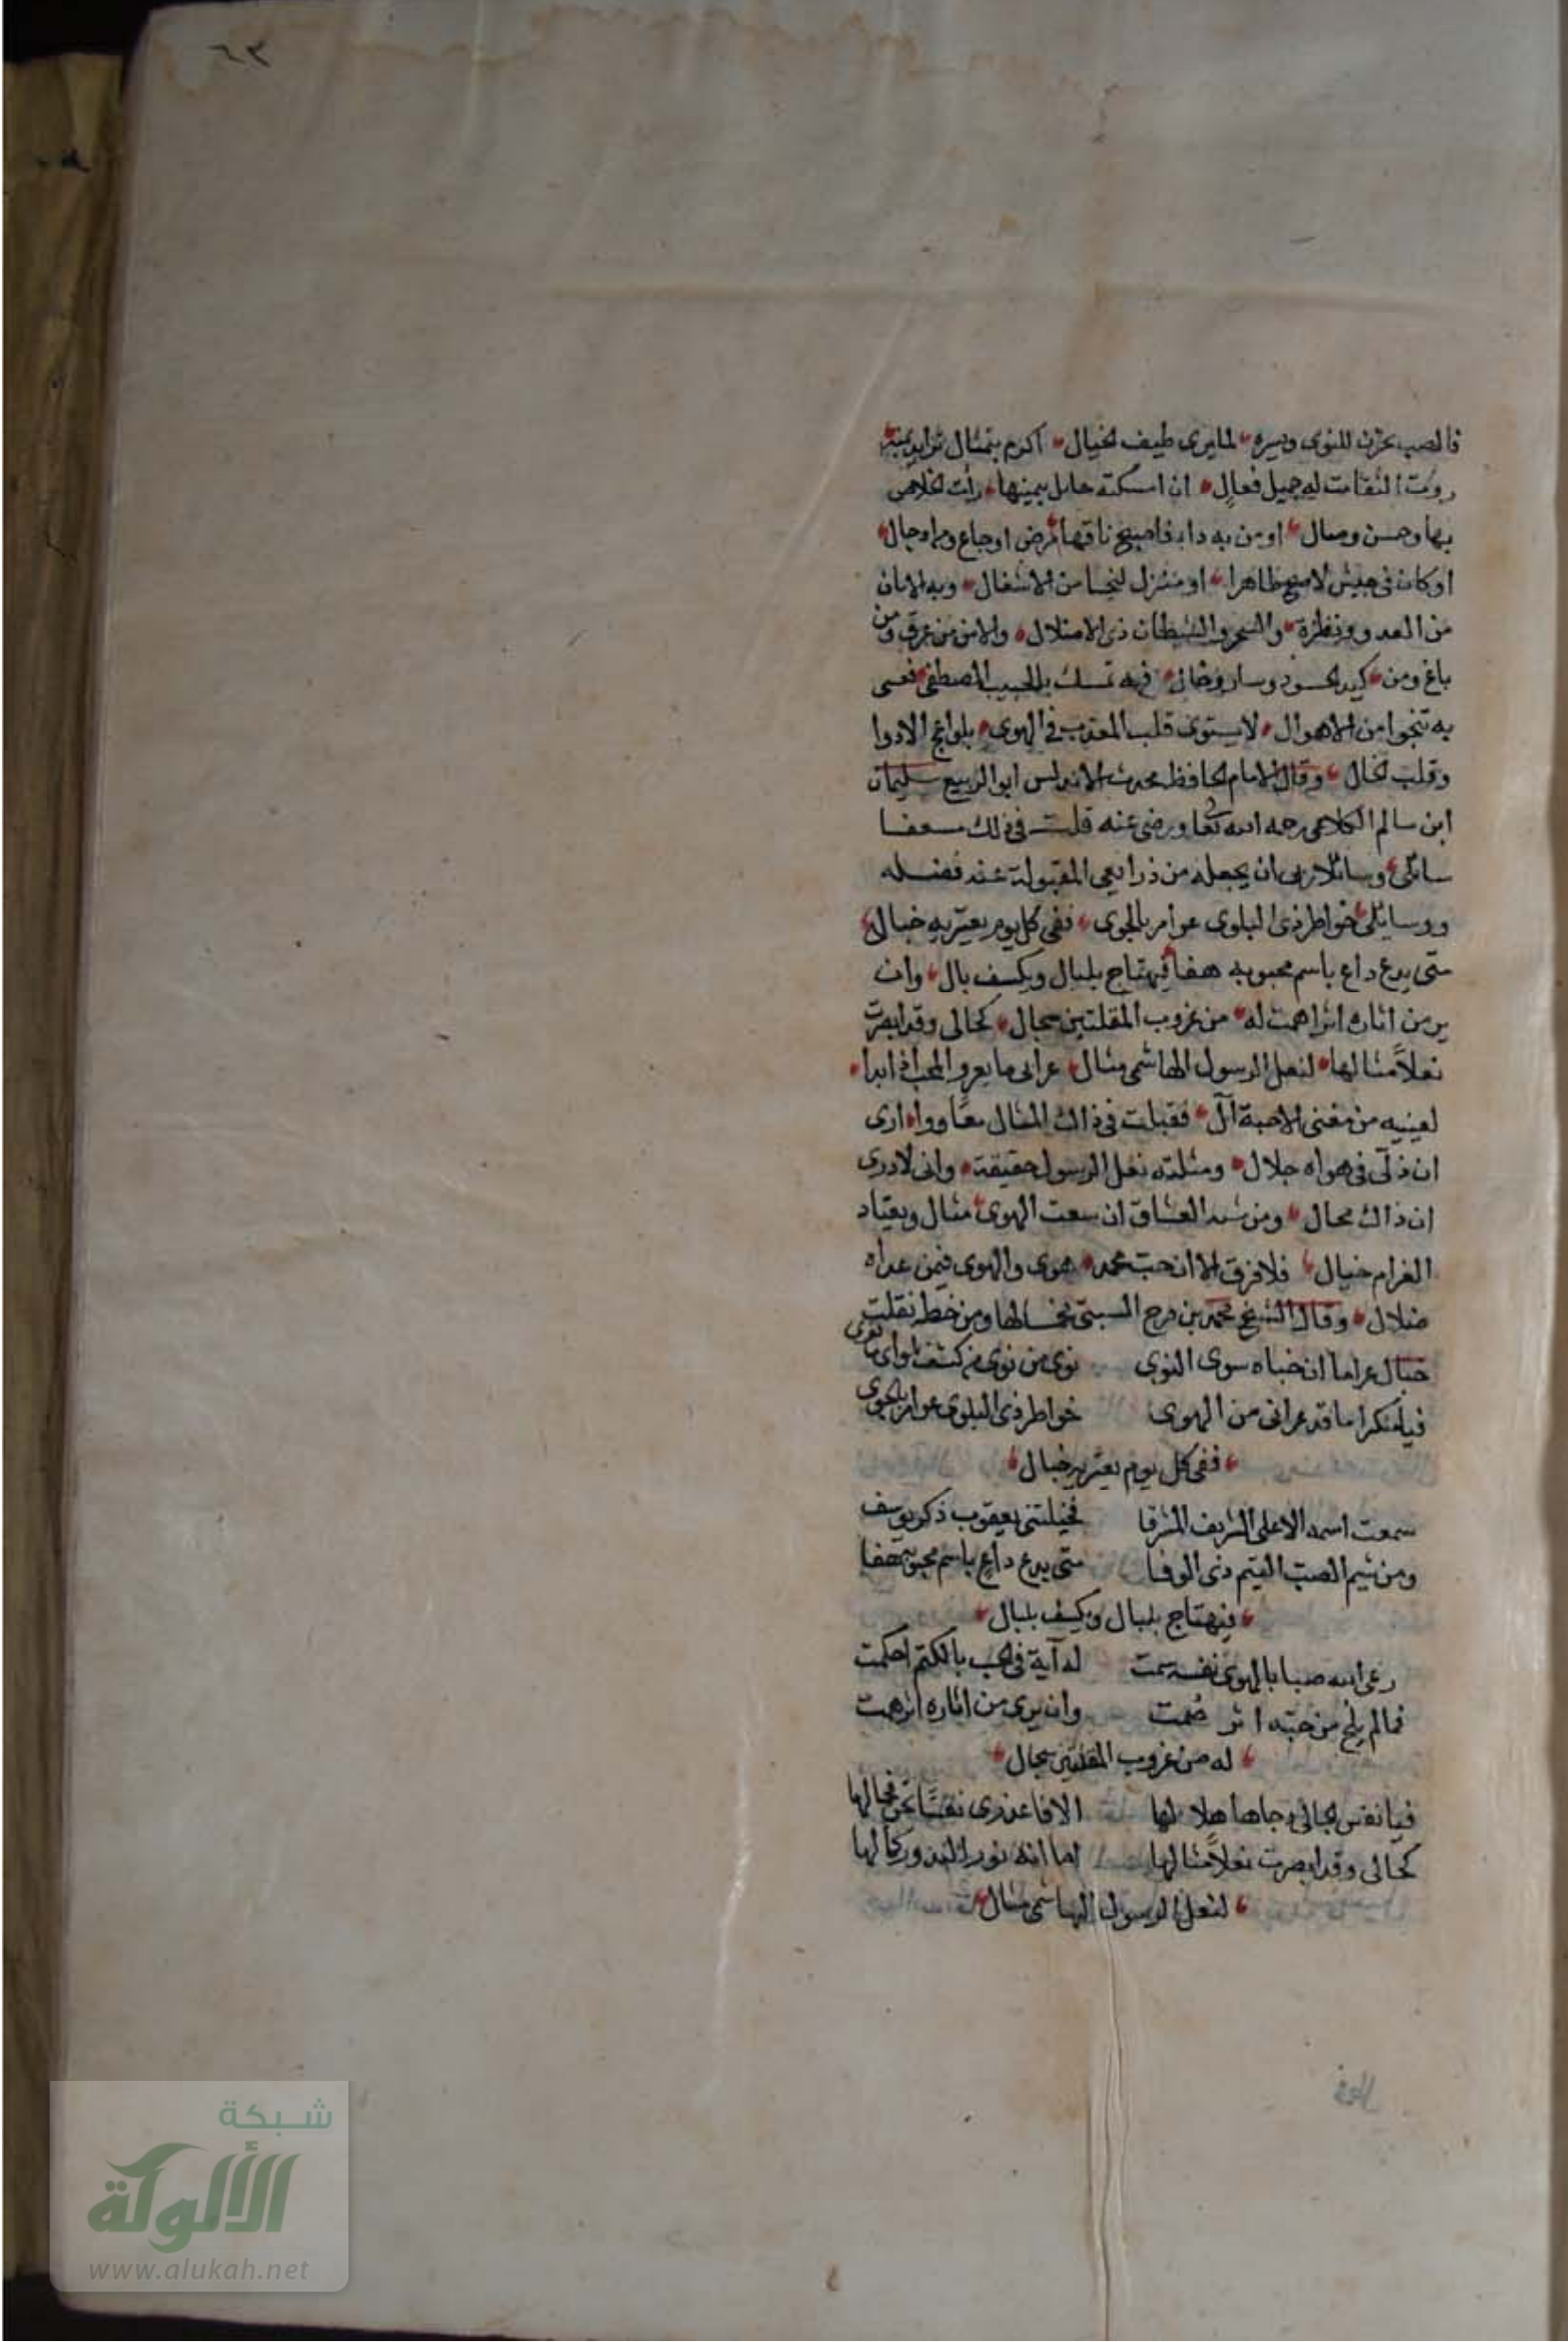 ٦٣
فالصب يحزن للنوى ويسره لما يرى طيف الخيال اكرم بتمثال تزايد يمنه
روت الثقات له جميل فعال ان امسكته حامل بيمينها رأت الخلاص
بها وحسن وصال او من به داء فاصبح ناقها مرض اوجاع
او كان في جيش لاصبح ظاهرا او منزل لنجا من الاشغال وبه الامان
من العدو ونظرة والسحر والشيطان ذي الاضلال والامن من غرق ومن
باغ ومن كيد الحسود وسارق فبه تمسك بالحبيب المصطفى فعسى
به تنجوا من الاهوال لا يستوى قلب المعذب في الهوى بلواعج الادوا
وقلب الخال وقال الامام الحافظ محدث الاندلس ابو الربيع سليمان
ابن سالم الكلاعي رحمه الله تعا ورضى عنه قلت في ذلك مسعفا
سائلى وسائلا ربى ان يجعله من ذرايعى المقبولة عند فضله
ووسايلى خواطر ذى البلوى عوامر بالجوى ففى كل يوم يعتريه خبال
متى يدع داع باسم محبوبه هفا فيهتاج بلبال ويكسف بال وان
ير من اثاره اثرا همت له من غروب المقلتين سجال كحالى وقد ابصرت
نعلاً مثالها لنعل الرسول الهاشمى مثال عرانى ما يعرو المحب اذ ابدا
لعينيه من مغنى الاحبة آل فقبلت في ذاك المثال معاودا ارى
ان ذلى فى هواه جلال ومثلته نعل الرسول حقيقة وانى لادرى
ان ذاك محال ومن سنة العشاق ان يبعث الهوى مثال ويعتاد
الغرام خيال فلا فرق الا ان حب محمد هدى والهوى فيمن عداه
ضلال وقال الشيخ محمد بن فرج السبتى مخمسا لها ومن خطه نقلت
خبال عراما ان خباه سوى النوى نوى من نوى
فيا منكرا ما قد عرانى من الهوى خواطر ذى البلوى عوامر بالجوى
ففى كل يوم يعتريه خبال
سمعت اسمه الاعلى الشريف المشرفا فخيلتنى يعقوب ذكر يوسف
ومن شيم الصب المتيم ذى الوفا متى يدع داع باسم محبوبه هفا
فيهتاج بلبال ويكسف بلبال
رعى الله صبا بالهوى نفسه سمت له آية فى الحب بالكتم احكمت
فما لم يلح من حبه اثر صمت وان يرى من اثاره اثر همت
له من غروب المقلتين سجال
فيا نفس الا فاعذرى نفسًا
كحالى وقد ابصرت نعلاً مثالها اما انه نور البدور كمالها
لنعل الرسول الهاشمى مثال
شبكة
الألوكة
www.alukah.net